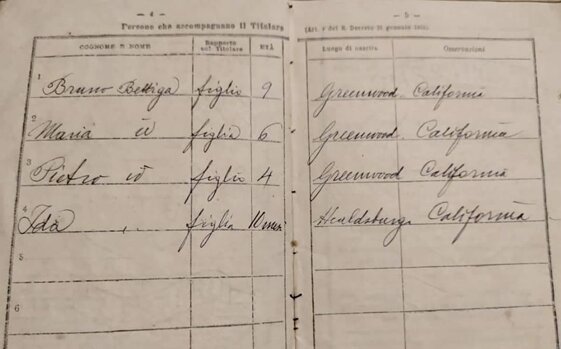 — 4 —
Persone che accompagnano il Titolare
COGNOME E NOME
Rapporto
col Titolare
Età
1
Bruno Bettiga figlio 9
2
Maria id figlia 6
3
Pietro id figlio 4
4
Ida " figlia 10 mesi
5
6
— 5 —
(Art. 7 del R. Decreto 31 gennaio 1901)
Luogo di nascita
Osservazioni
Greenwood California
Greenwood California
Greenwood California
Healdsburg California